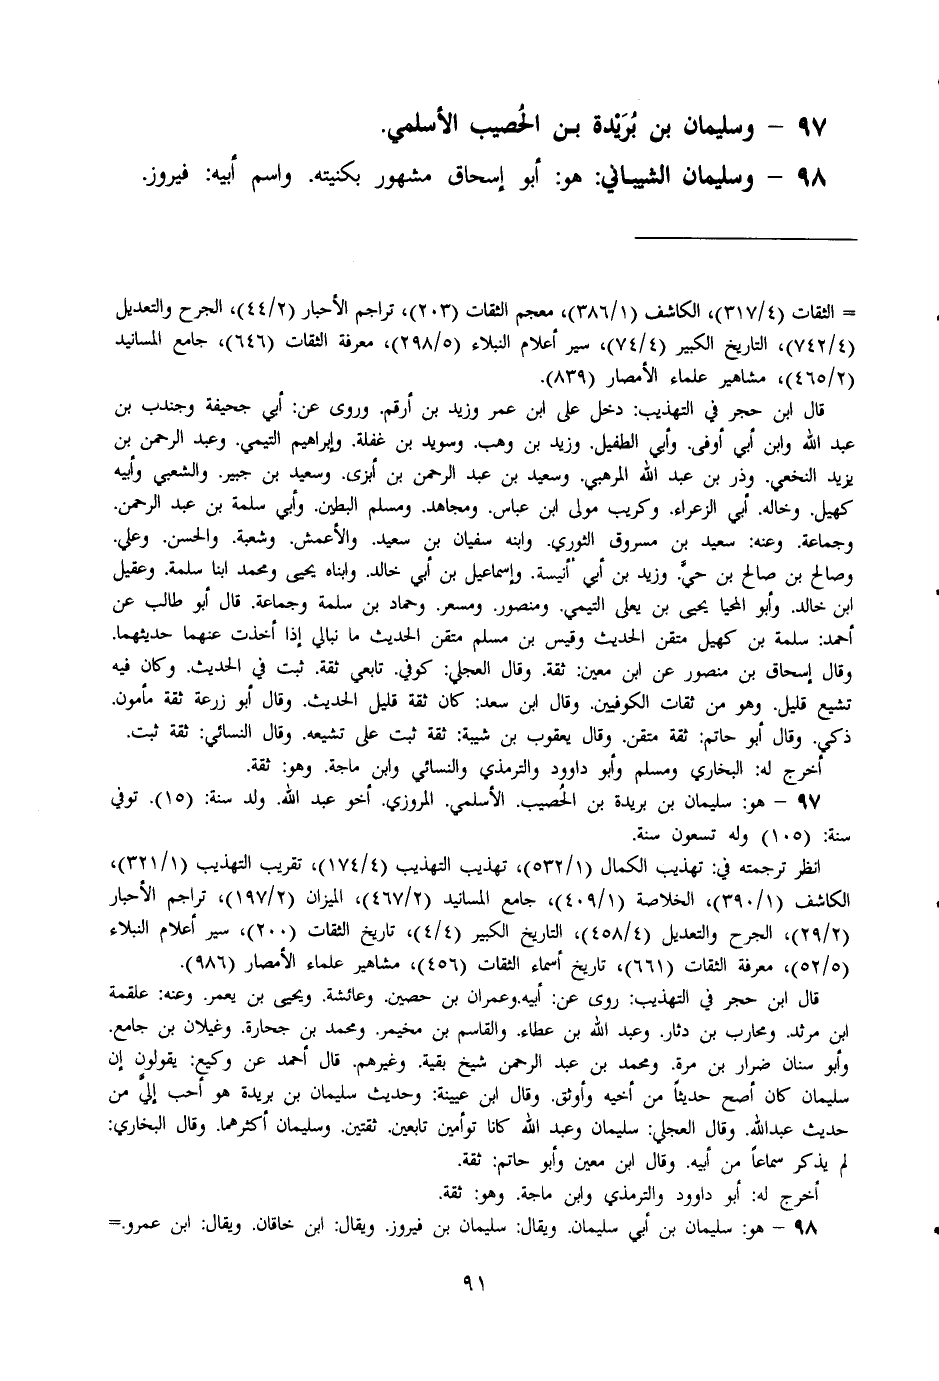 ٩٧ - وسليمان بن بُرَيْدة بـن الحُصيب الأسلمي.
٩٨ - وسليمان الشيباني: هو: أبو إسحاق مشهور بكنيته. واسم أبيه: فيروز.
= الثقات (٣١٧/٤)، الكاشف (٣٨٦/١)، معجم الثقات (٢٠٣)، تراجم الأحبار (٤٤/٢)، الجرح والتعديل
(٧٤٢/٤)، التاريخ الكبير (٧٤/٤)، سير أعلام النبلاء (٢٩٨/٥)، معرفة الثقات (٦٤٦)، جامع المسانيد
(٤٦٥/٢)، مشاهير علماء الأمصار (٨٣٩).
قال ابن حجر في التهذيب: دخل على ابن عمر وزيد بن أرقم. وروى عن: أبي جحيفة وجندب بن
عبد الله وابن أبي أوفى. وأبي الطفيل. وزيد بن وهب. وسويد بن غفلة. وإبراهيم التيمي. وعبد الرحمن بن
يزيد النخعي. وذر بن عبد الله المرهبي. وسعيد بن عبد الرحمن بن أبزى. وسعيد بن جبير. والشعبي وأبيه
كهيل. وخاله. أبي الزعراء. وكريب مولى ابن عباس. ومجاهد. ومسلم البطين. وأبي سلمة بن عبد الرحمن.
وجماعة. وعنه: سعيد بن مسروق الثوري. وابنه سفيان بن سعيد. والأعمش. وشعبة. والحسن. وعلي.
وصالح بن صالح بن حيَّ. وزيد بن أبي أنيسة. وإسماعيل بن أبي خالد. وابناه يحيى ومحمد ابنا سلمة. وعقيل
ابن خالد. وأبو المحيا يحيى بن يعلى التيمي. ومنصور. ومسعر. وحماد بن سلمة وجماعة. قال أبو طالب عن
أحمد: سلمة بن كهيل متقن الحديث وقيس بن مسلم متقن الحديث ما نبالي إذا أخذت عنهما حديثهما.
وقال إسحاق بن منصور عن ابن معين: ثقة. وقال العجلي: كوفي. تابعي ثقة. ثبت في الحديث. وكان فيه
تشيع قليل. وهو من ثقات الكوفيين. وقال ابن سعد: كان ثقة قليل الحديث. وقال أبو زرعة ثقة مأمون.
ذكي. وقال أبو حاتم: ثقة متقن. وقال يعقوب بن شيبة: ثقة ثبت على تشيعه. وقال النسائي: ثقة ثبت.
أخرج له: البخاري ومسلم وأبو داوود والترمذي والنسائي وابن ماجة. وهو: ثقة.
٩٧ - هو: سليمان بن بريدة بن الحُصيب. الأسلمي. المروزي. أخو عبد الله. ولد سنة: (١٥). توفي
سنة: (١٠٥) وله تسعون سنة.
انظر ترجمته في: تهذيب الكمال (٥٣٢/١)، تهذيب التهذيب (١٧٤/٤)، تقريب التهذيب (٣٢١/١)،
الكاشف (٣٩٠/١)، الخلاصة (٤٠٩/١)، جامع المسانيد (٤٦٧/٢)، الميزان (١٩٧/٢)، تراجم الأحبار
(٢٩/٢)، الجرح والتعديل (٤٥٨/٤)، التاريخ الكبير (٤/٤)، تاريخ الثقات (٢٠٠)، سير أعلام النبلاء
(٥٢/٥)، معرفة الثقات (٦٦١)، تاريخ أسماء الثقات (٤٥٦)، مشاهير علماء الأمصار (٩٨٦).
قال ابن حجر في التهذيب: روى عن: أبيه.وعمران بن حصين. وعائشة. ويحيى بن يعمر. وعنه: علقمة
ابن مرثد. ومحارب بن دثار. وعبد الله بن عطاء. والقاسم بن مخيمر. ومحمد بن جحارة. وغيلان بن جامع.
وأبو سنان ضرار بن مرة. ومحمد بن عبد الرحمن شيخ بقية. وغيرهم. قال أحمد عن وكيع: يقولون إن
سليمان كان أصح حديثاً من أخيه وأوثق. وقال ابن عيينة: وحديث سليمان بن بريدة هو أحب إليَّ من
حديث عبدالله. وقال العجلي: سليمان وعبد الله كانا توأمين تابعين. ثقتين. وسليمان أكثرهما. وقال البخاري:
لم يذكر سماعاً من أبيه. وقال ابن معين وأبو حاتم: ثقة.
أخرج له: أبو داوود والترمذي وابن ماجة. وهو: ثقة.
٩٨ - هو: سليمان بن أبي سليمان. ويقال: سليمان بن فيروز. ويقال: ابن خاقان. ويقال: ابن عمرو.=
٩١